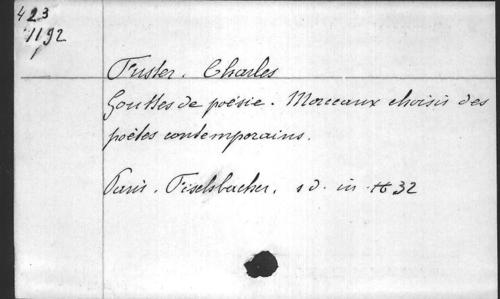 423
1192
Fuster. Charles
Gouttes de poésie. Morceaux choisis des
poètes contemporains.
Paris. Fischbacher. s d. in 32